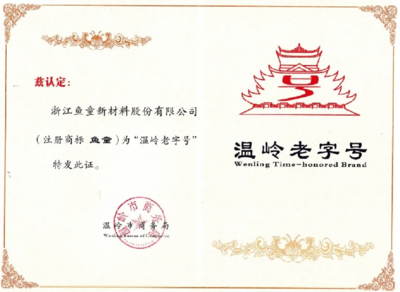 兹认定：
浙江鱼童新材料股份有限公司
（注册商标 鱼童）为“温岭老字号”
特发此证。
温岭市商务局
Wenling Bureau of Commerce
温岭老字号
Wenling Time-honored Brand